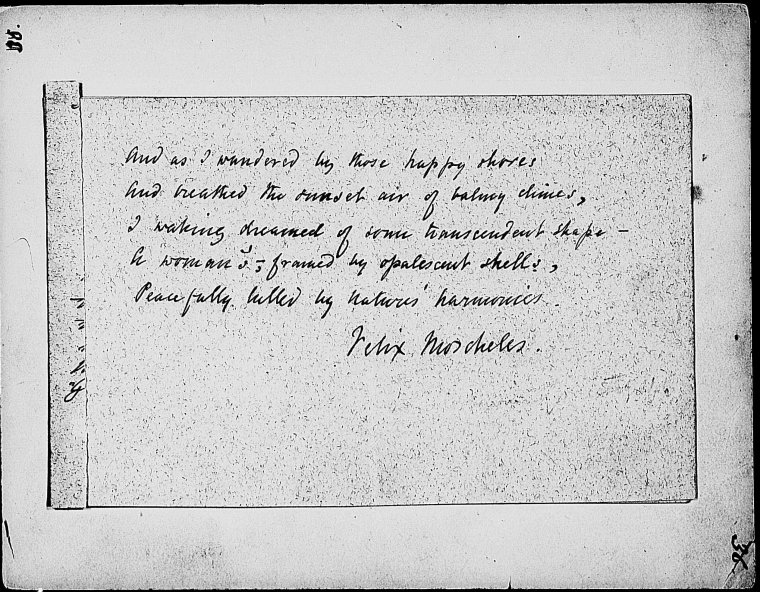 And as I wandered by those happy shores
And breathed the sunset air of balmy climes,
I waking dreamed of some transcendent shape –
A woman's – framed by opalescent shells,
Peacefully lulled by natures' harmonies.
Felix Moscheles.